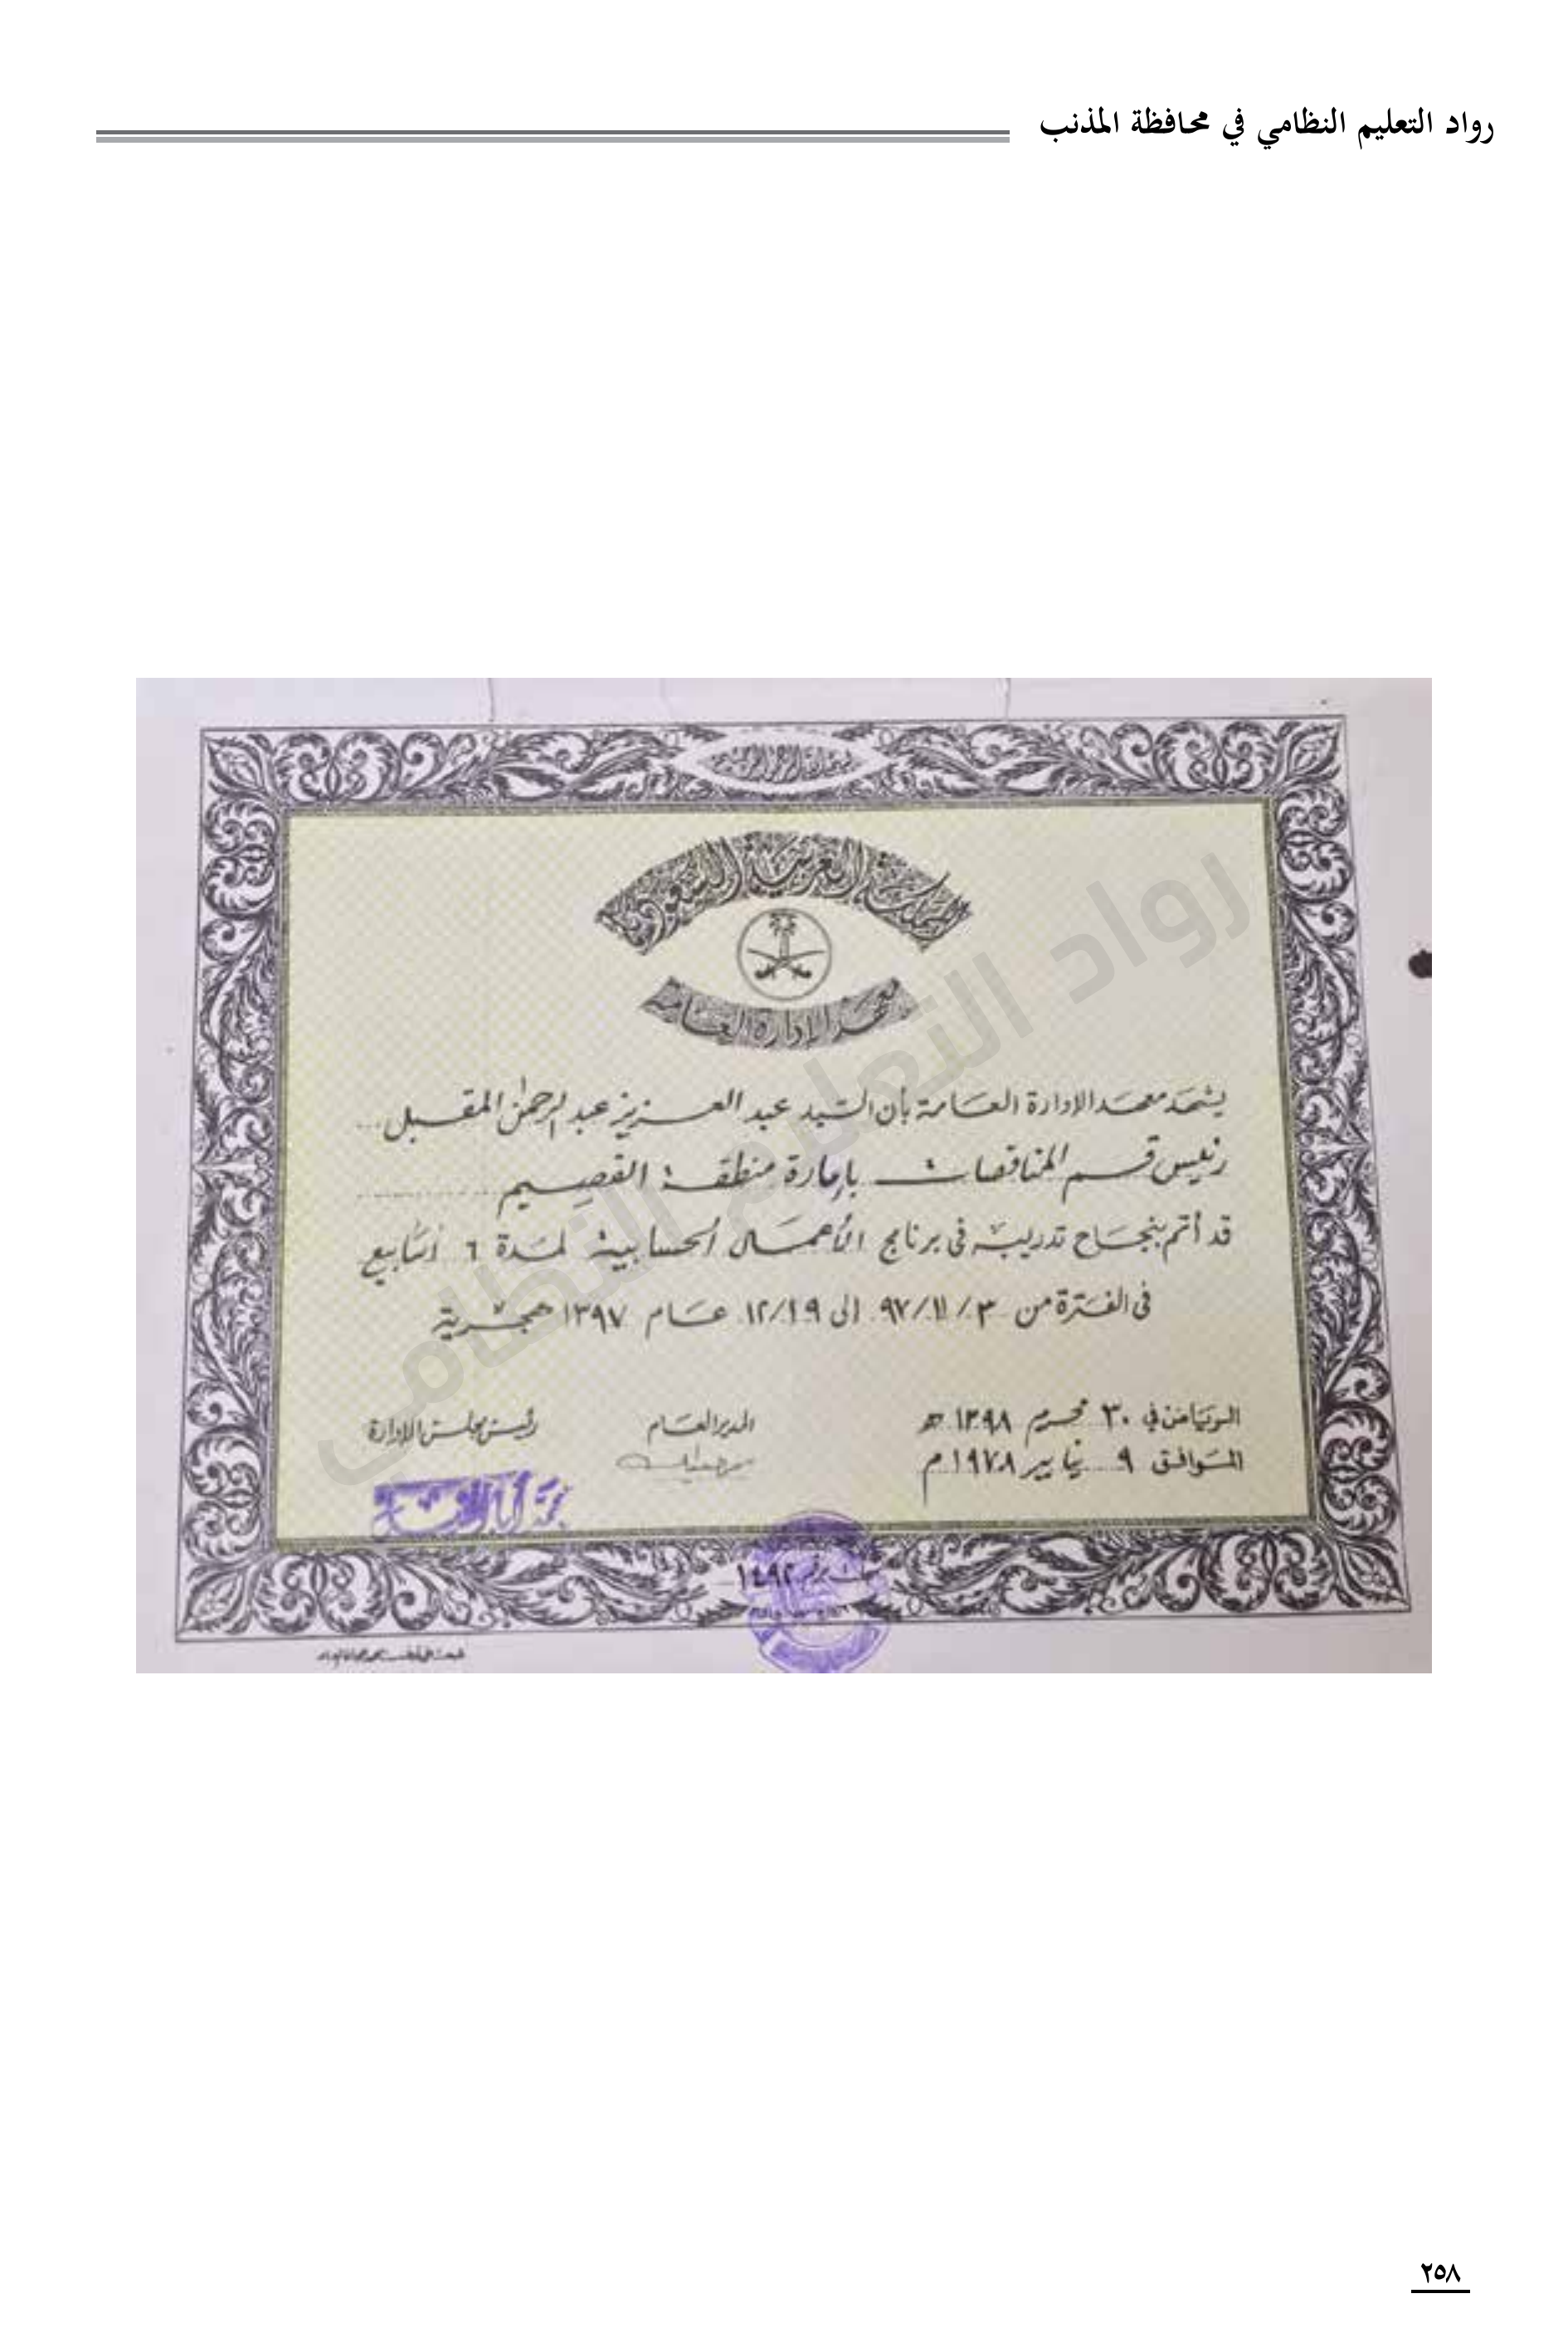 رواد التعليم النظامي في محافظة المذنب
بسم الله الرحمن الرحيم
المملكة العربية السعودية
معهد الإدارة العامة
يشهد معهد الإدارة العامة بأن السيد عبد العزيز عبد الرحمن المقبل
رئيس قسم المناقصات بإمارة منطقة القصيم
قد أتم بنجاح تدريبه في برنامج الأعمال الحسابية لمدة ٦ أسابيع
في الفترة من ٩٧/١١/٣ الى ١٢/١٩ عام ١٣٩٧ هجرية
الرياض في ٣٠ محرم ١٣٩٨ هـ
الموافق ٩ يناير ١٩٧٨ م
المدير العام
رئيس مجلس الإدارة
رواد التعليم النظامي
٢٥٨